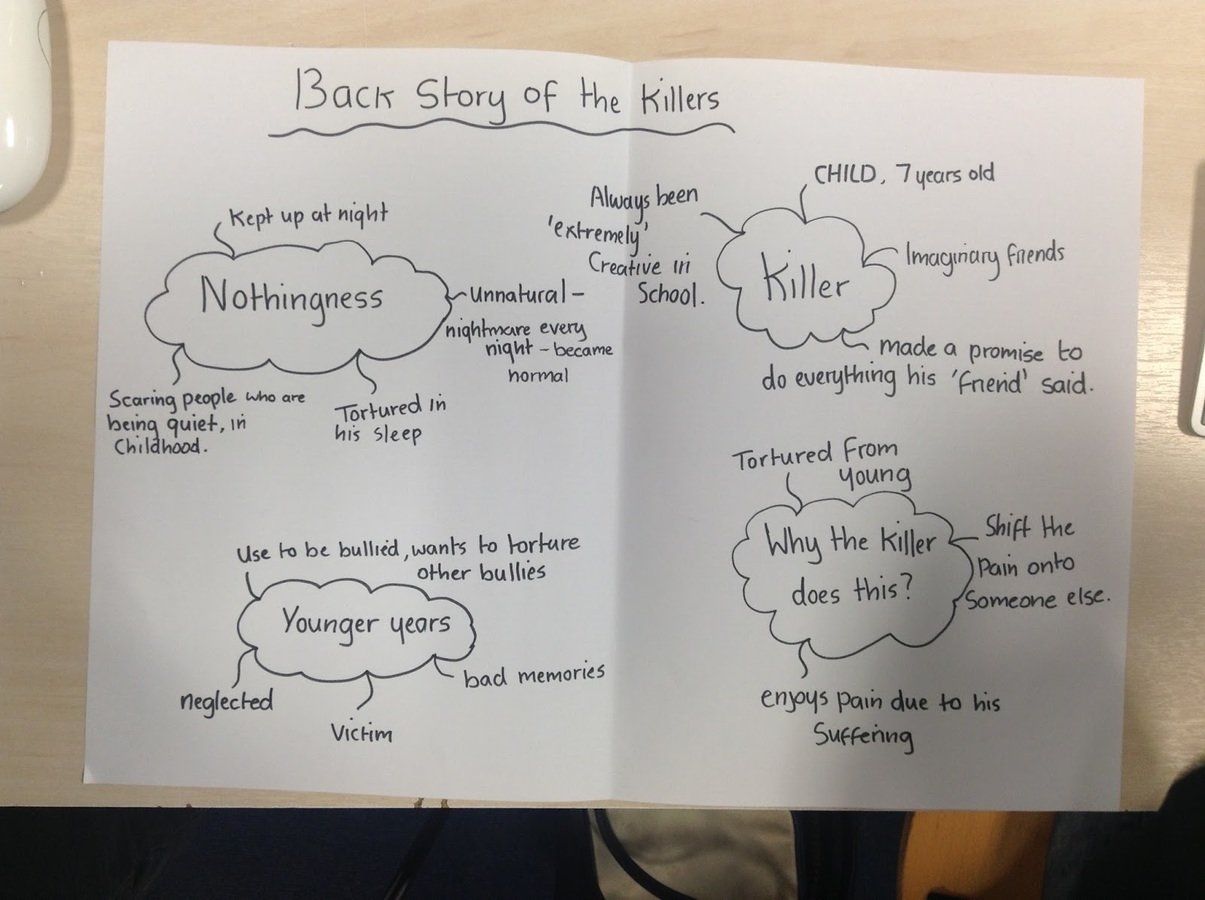 Back Story of the Killers
Kept up at night
Nothingness
Unnatural -
nightmare every
night - became
normal
Scaring people who are
being quiet, in
Childhood.
Tortured in
his sleep
Always been
'extremely'
Creative in
School.
CHILD, 7 years old
Killer
Imaginary friends
made a promise to
do everything his 'friend' said.
Use to be bullied, wants to torture
other bullies
Younger years
neglected
Victim
bad memories
Tortured From
young
Why the Killer
does this?
Shift the
Pain onto
Someone else.
enjoys pain due to his
Suffering